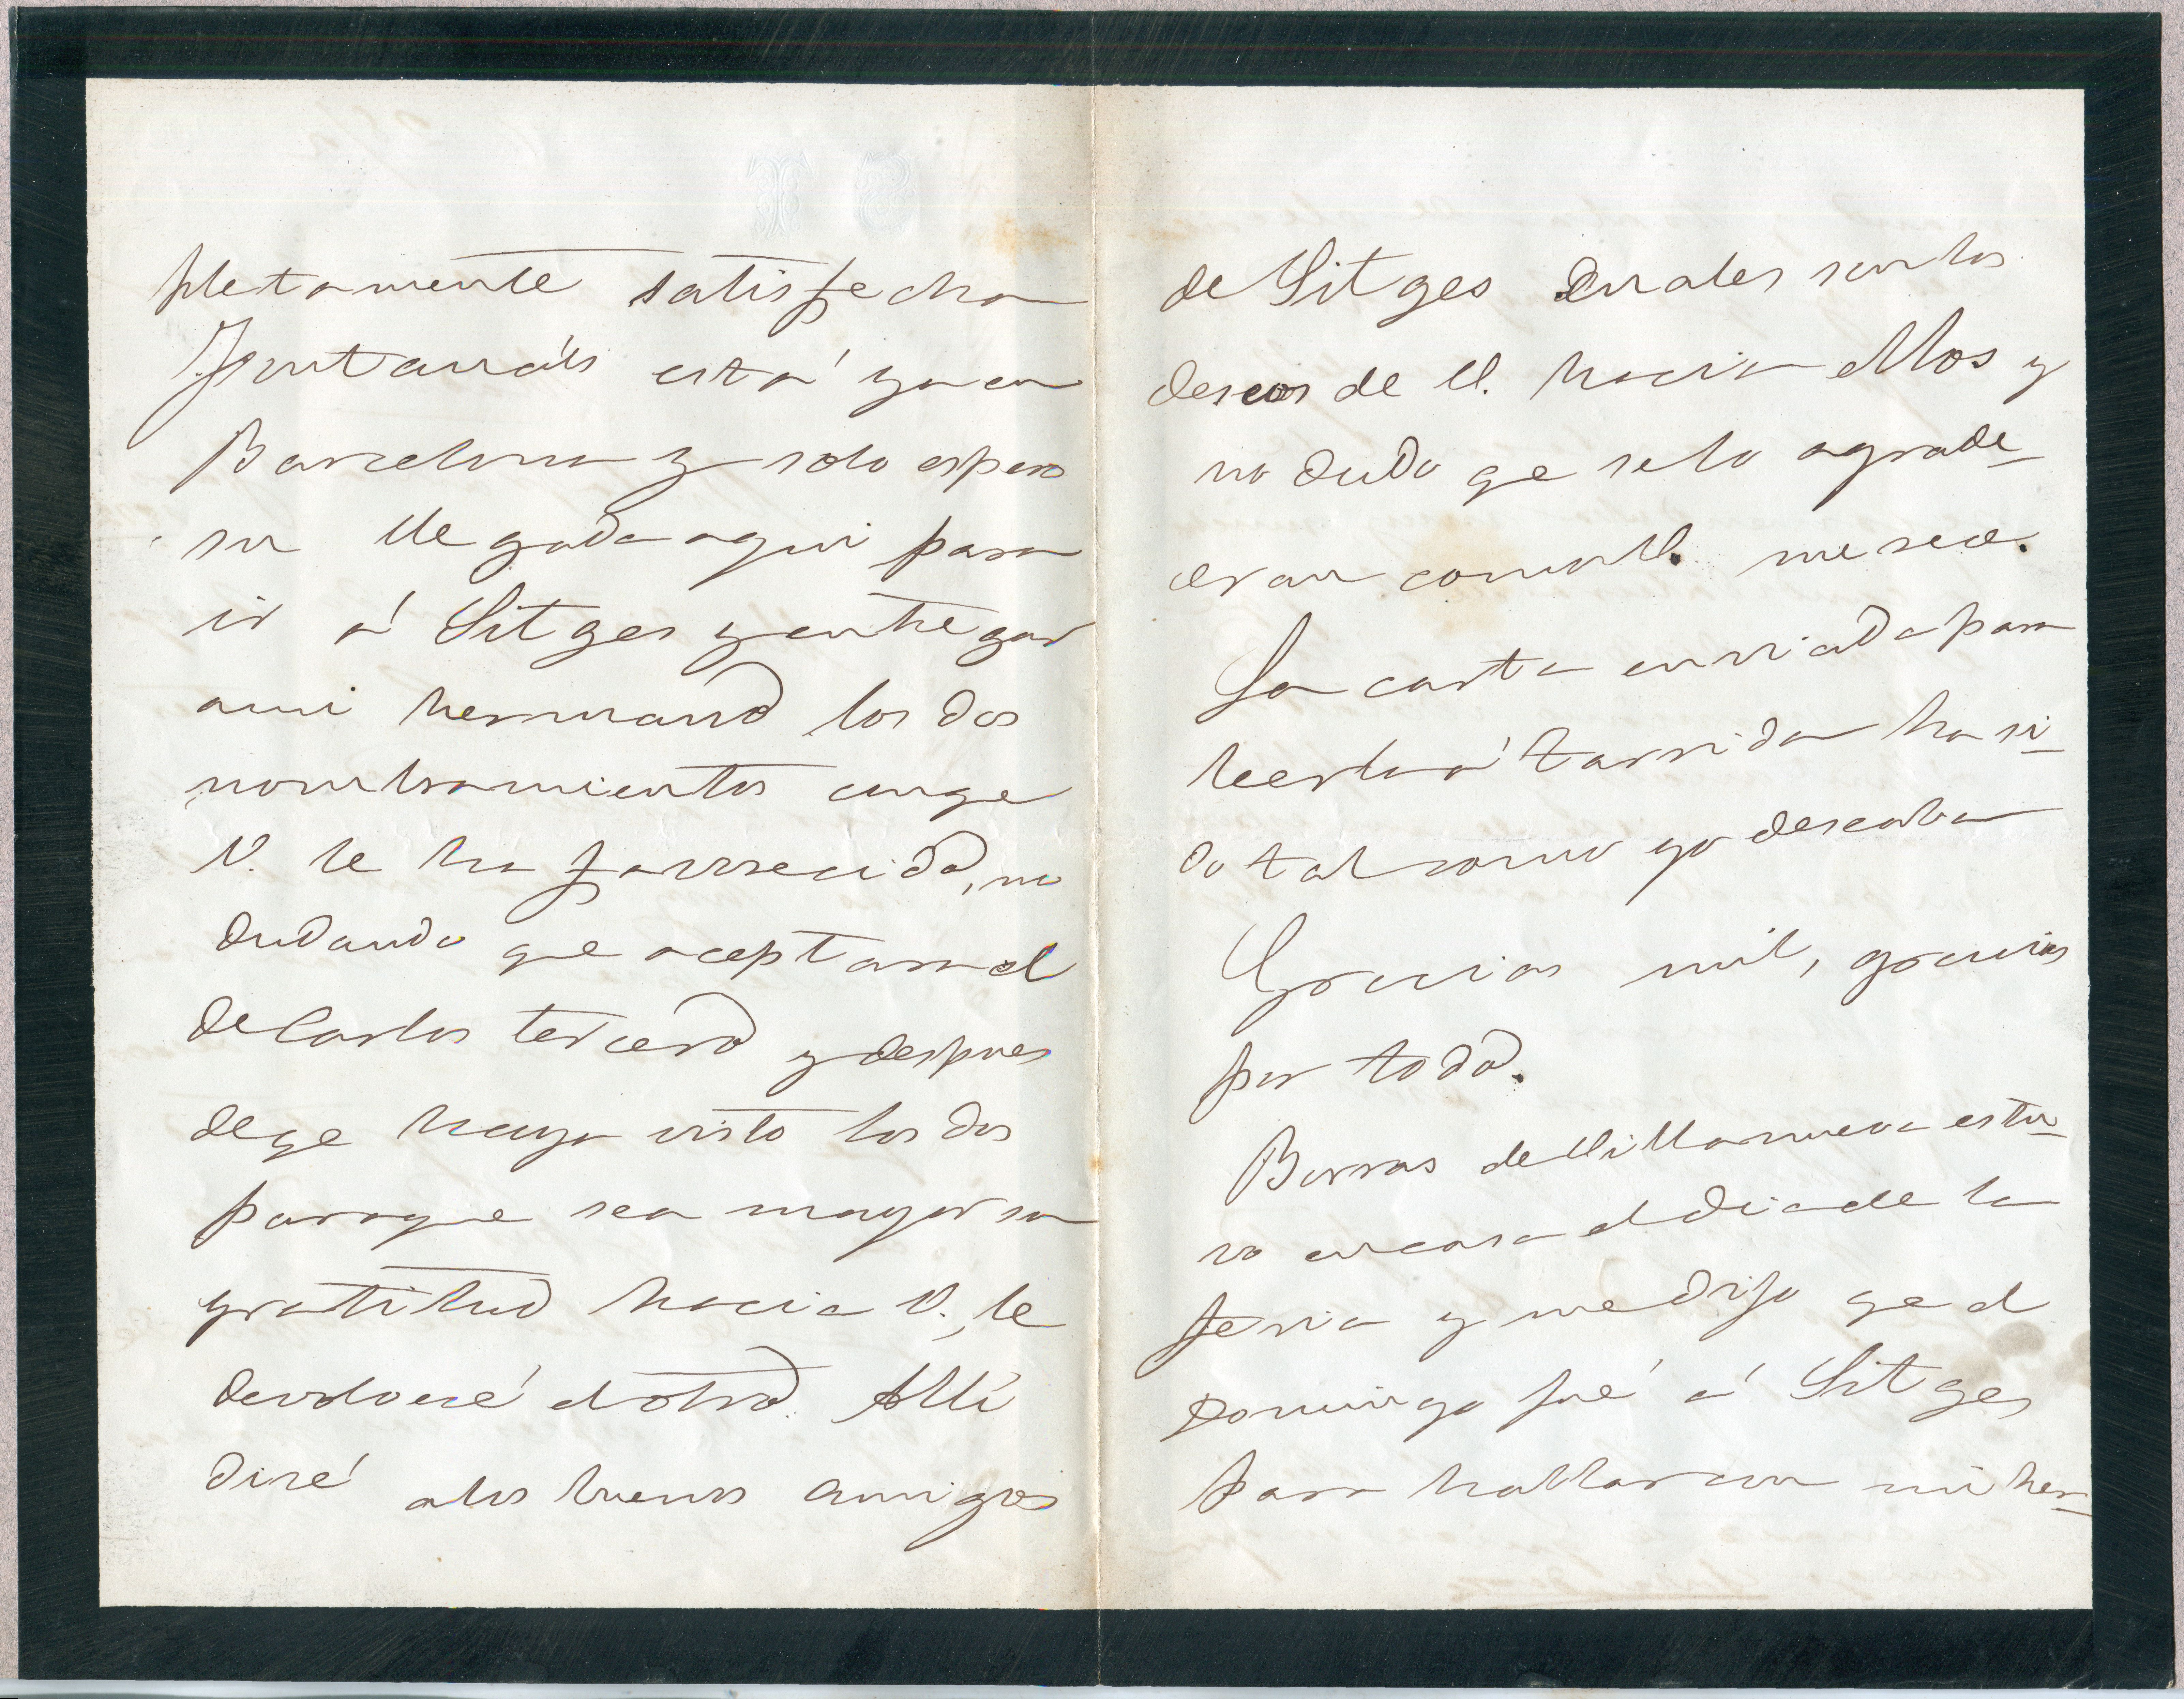 pletamente satisfecha
Fontanáls está ya en
Barcelona y solo espero
su llegada aqui para
ir á Sitges y entregar
a mi hermano los dos
nombramientos con qe
V. le ha favorecido, no
dudando que aceptara el
de Carlos tercero y despues
de qe haya visto los dos
para que sea mayor su
gratitud hacia V., le
devolveré el otro. Allí
diré a los buenos amigos
de Sitges cuales son los
deseos de V. hacia ellos y
no dudo qe se lo agrade-
ceran como V. merece.
La carta enviada para
leerla á Tarrida ha si-
do tal como yo deseaba
Gracias mil, gracias
por todo.
Borras de Villanueva estu-
vo en casa el dia de la
feria y me dijo qe el
Domingo fué á Sitges
para hablar con mi her-